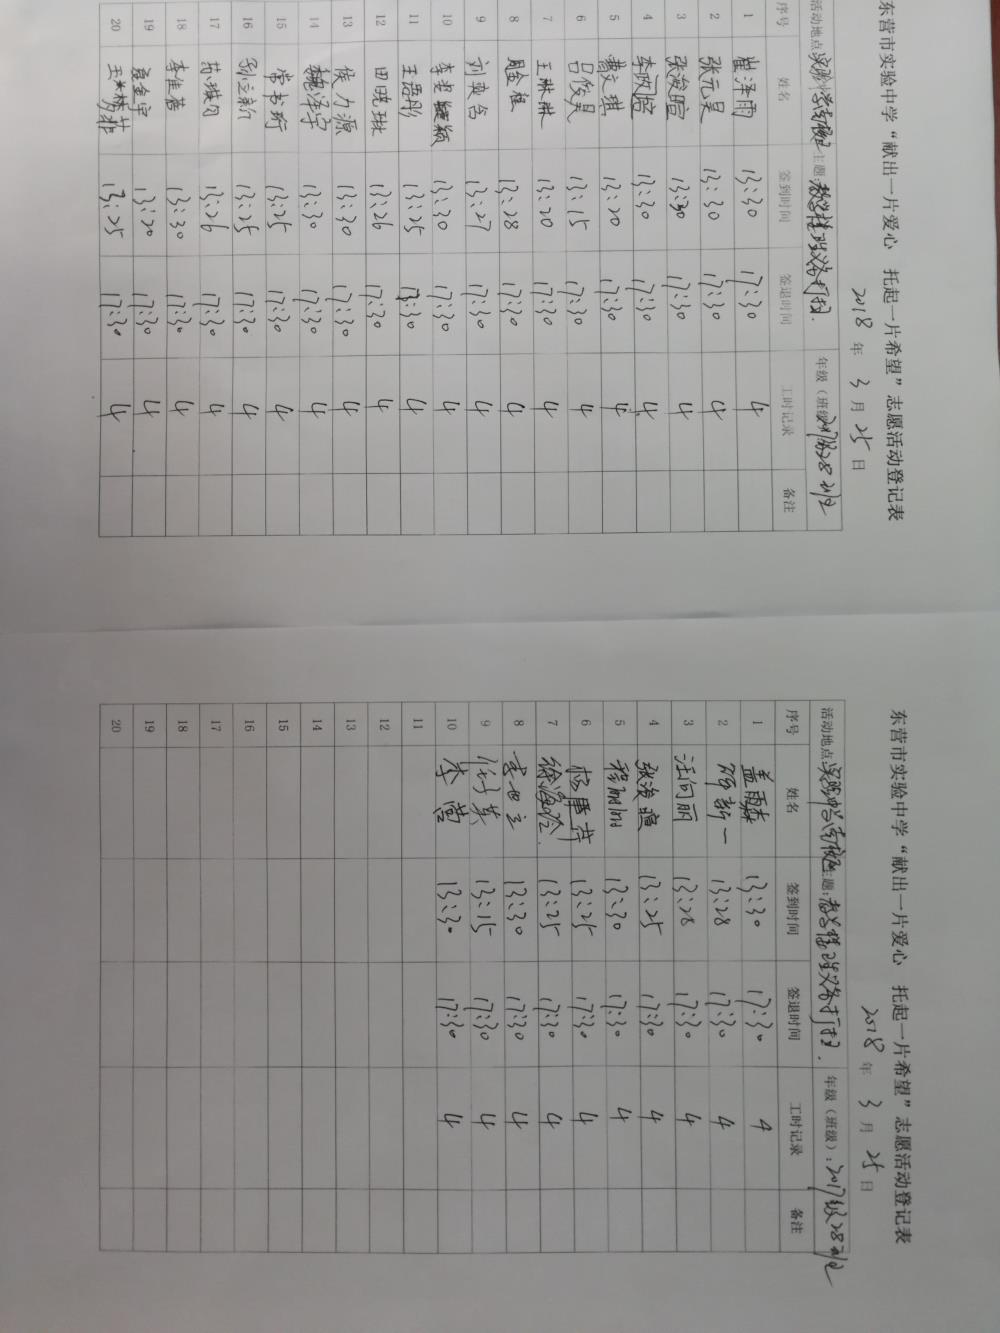 东营市实验中学“献出一片爱心 托起一片希望”志愿活动登记表
2018年3月25日
活动地点 实验中学南校 主题:教学楼及义务打扫. 年级(班级) 2017级28班
序号 姓名 签到时间 签退时间 工时记录 备注
1 崔泽雨 13:30 17:30 4
2 张元昊 13:30 17:30 4
3 张浚暄 13:30 17:30 4
4 13:30 17:30 4
5 13:20 17:30 4
6 吕俊昊 13:15 17:30 4
7 王琳琳 13:20 17:30 4
8 周金程 13:28 17:30 4
9 刘奕含 13:27 17:30 4
10 13:30 17:30 4
11 王语彤 13:25 17:30 4
12 田晓琳 13:26 17:30 4
13 侯力源 13:30 17:30 4
14 魏泽宇 13:30 17:30 4
15 常书珩 13:25 17:30 4
16 孙立新 13:25 17:30 4
17 13:26 17:30 4
18 李佳蓓 13:30 17:30 4
19 13:20 17:30 4
20 13:25 17:30 4
东营市实验中学“献出一片爱心 托起一片希望”志愿活动登记表
2018年3月25日
活动地点 实验中学南校 主题:教学楼及义务打扫. 年级(班级):2017级28班
序号 姓名 签到时间 签退时间 工时记录 备注
1 盖雨森 13:30 17:30 4
2 13:28 17:30 4
3 汪向丽 13:28 17:30 4
4 张浚暄 13:25 17:30 4
5 13:30 17:30 4
6 13:25 17:30 4
7 徐海玲. 13:25 17:30 4
8 李世立 13:30 17:30 4
9 任好英 13:15 17:30 4
10 13:30 17:30 4
11
12
13
14
15
16
17
18
19
20